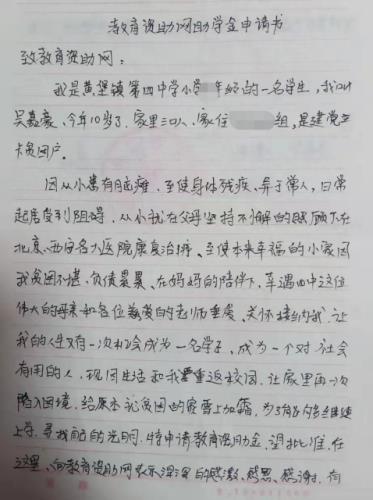 教育资助网助学金申请书
致教育资助网:
我是黄堡镇第四中学小学年级的一名学生,我叫
吴嘉豪、今年10岁了.家里三口人、家住组,是建党立
卡贫困户。
因从小患有脑瘫、至使身体残疾、异于常人,日常
起居受到阻碍.从小就在父母坚持不懈的照顾下在
北京、西安各大医院康复治疗、至使本来幸福的小家因
我贫困不堪、负债累累、在妈妈的陪伴下,幸遇四中这位
伟大的母亲和各位慈爱的老师垂爱、关怀接纳我.让
我的人生又有一次机会成为一名学子、成为一个对社会
有用的人,现因生活和我要重返校园.让家里再一次
陷入困境.给原本就贫困的家雪上加霜.为了能够继续
上学.寻找自己的光明.特申请教育资助金,望批准.在
这里、向教育资助网表示深深的感激、感恩、感谢.有